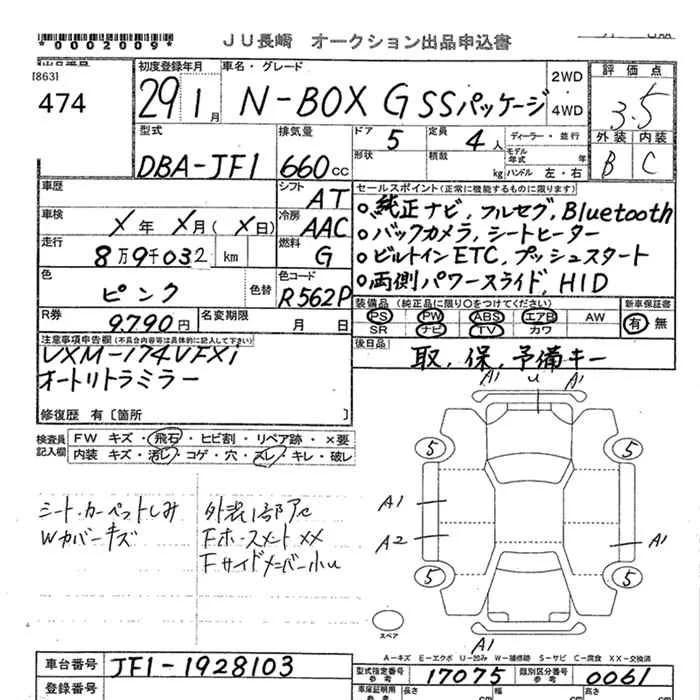 *0002009*
JU長崎 オークション出品申込書
[863]
474
初度登録年月
29 1月
車名・グレード
N-BOX G SSパッケージ
2WD
・
4WD
評価点
3.5
外装 内装
B C
型式
DBA-JF1
排気量
660cc
ドア 5
形状
定員 4人
積載 kg
ディーラー・並行
モデル年式 年
ハンドル 左・右
車歴
シフト AT
車検 X年 X月(X日)
冷房 AAC
走行 8万9千032 km
燃料 G
色 ピンク 色替
色コード R562P
R券 9,790円
名変期限 月 日
セールスポイント(正常に機能するものに限ります)
○純正ナビ, フルセグ, Bluetooth
○バックカメラ, シートヒーター
○ビルトインETC, プッシュスタート
○両側パワースライド, HID
装備品 (純正品に限り○をつけてください)
PS PW ABS エアB AW
SR ナビ TV カワ
新車保証書
有・無
後日品
取, 保, 予備キー
注意事項申告欄(不具合内容等は具体的に記入して下さい)
VXM-174VFXi
オートリトラミラー
修復歴 有〔箇所 〕
検査員記入欄
FW キズ・飛石・ヒビ割・リペア跡・×要
内装 キズ・汚レ・コゲ・穴・スレ・キレ・破レ
シート・カーペットしみ
Wカバーキズ
外装1部アセ
Fホースメント XX
Fサイドメンバー小U
A1 U A1
5 5
A1
A2 A1
5 5
スペア
A1
A-キズ E-エクボ U-凹み W-補修跡 S-サビ C-腐食 XX-交換済
車台番号 JF1-1928103
登録番号
型式指定番号 参考 17075
類別区分番号 参考 0061
車庫証明用 参考
長さ cm
幅 cm
高さ cm